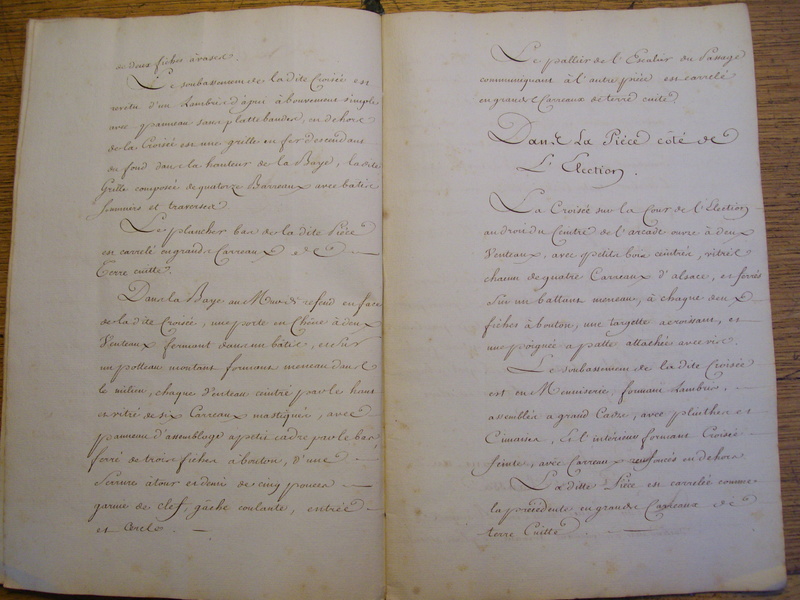 de deux fiches à vases.
Le soubassement de la dite Croisée est
revetu d'un Lambris d'apui à bouvement simple
avec panneau sans platte bandes, en dehors
de la Croisée est une grille en fer descendant
du fond dans la hauteur de la Baye, la dite
Grille composée de quatorze Barreaux avec bâtis
sommiers et traverses
Le plancher bas de la dite Piéce
est carrelé en grands Carreaux de
Terre cuitte.
Dans la Baye au Mur de refend en face
de la dite Croisée, une porte en Chêne à deux
Venteaux fermant dans un bâtis, et sur
un potteau montant formant meneau dans
le milieu, chaque Venteau ceintré par le haut
et vitré de six Carreaux mastiqués, avec
panneau d'assemblage a petit cadre par le bas,
ferré de trois fiches à bouton, d'une
Serrure à tour et demi de cinq pouces
garnie de clef, gâche coulante, entrée
et Cercle.
Le pallier de l'Escalier du Passage
communiquant à l'autre piéce est carrelé
en grands Carreaux de terre cuitte
Dans La Piéce côté de
L'Election.
La Croisée sur la Cour de l'Election
au droit du Ceintre de l'arcade ouvre à deux
Venteaux, avec petits bois ceintrés, vitrés
chacun de quatre Carreaux d'alsace, et ferrés
sur un battant meneau, à chaque deux
fiches à bouton, une targette a croissant, et
une poignée a patte attachée avec vis.
Le soubassement de la dite Croisée
est en Menuiserie formant Lambris,
assemblés a grand Cadre, avec plinthes et
Cimaises, et l'intérieur formant Croisée
feinte, avec Carreaux renfoncés en dehors
La ditte Piéce est carrelée comme
la précédente en grands Carreaux de
terre Cuitte